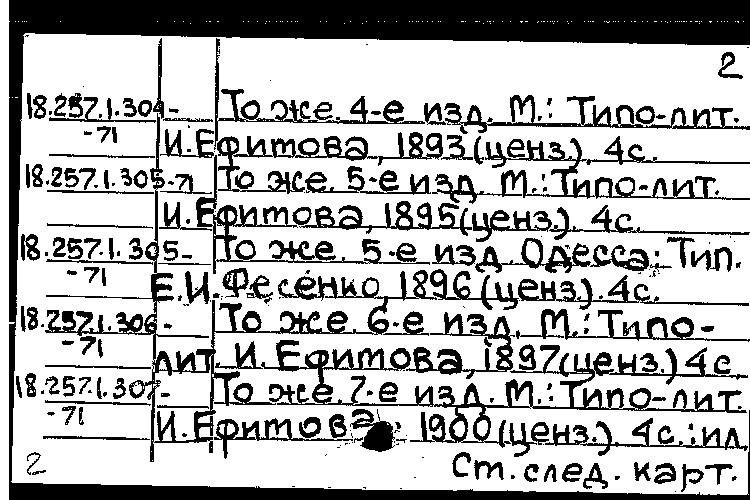 2
18.257.1.304- То же. 4-е изд. М.: Типо-лит.
-71 И. Ефимова, 1893 (ценз.). 4с.
18.257.1.305-71 То же. 5-е изд. М.: Типо-лит.
И. Ефимова, 1895 (ценз.). 4с.
18.257.1.305- То же. 5-е изд. Одесса: Тип.
-71 Е.И. Фесенко, 1896 (ценз.). 4с.
18.257.1.306- То же. 6-е изд. М.: Типо-
-71 лит. И. Ефимова, 1897 (ценз.) 4с.
18.257.1.307- То же. 7-е изд. М.: Типо-лит.
-71 И. Ефимова, 1900 (ценз.). 4с.: ил
2 Ст. след. карт.